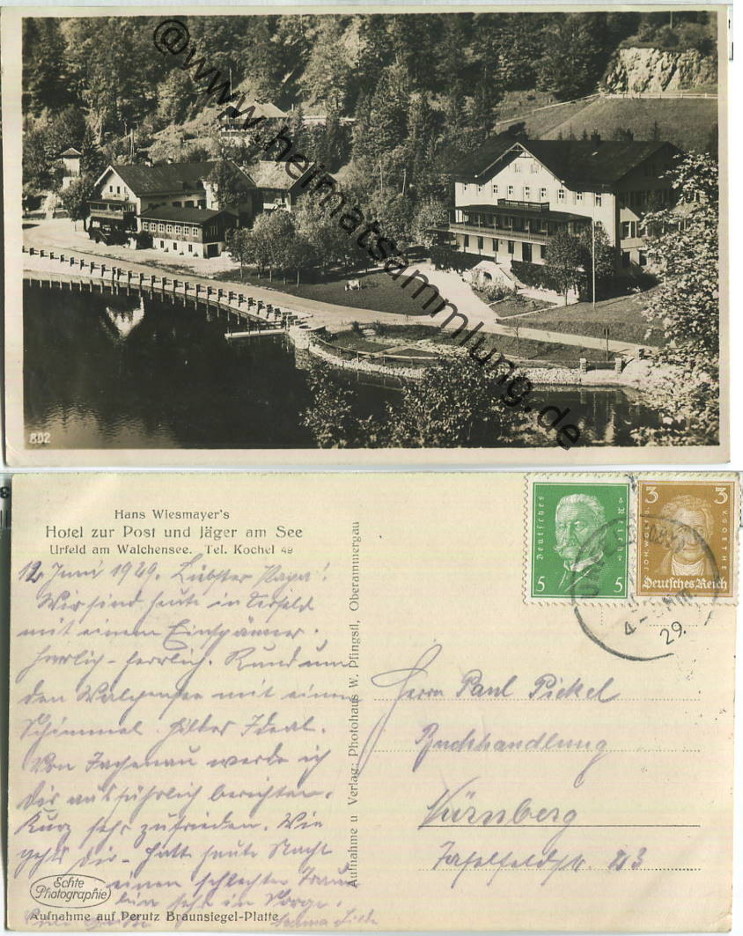 @www.heimatsammlung.de
892
Hans Wiesmayer's
Hotel zur Post und Jäger am See
Urfeld am Walchensee. Tel. Kochel 49
12. Juni 1929. Liebster Papa!
Wir sind heute in Urfeld
mit einem Einspänner.
herrlich - herrlich. Rund um
den Walchensee mit einem
Schimmel.
Von Jachenau werde ich
Dir ausführlich berichten.
Kurz sehr zufrieden. Wie
gehts Dir - hatte heute Nacht
einen schlechten Traum
bin sehr in Sorge.
Echte
Photographie
Aufnahme auf Perutz Braunsiegel-Platte
Aufnahme u Verlag: Photohaus W. Pfingstl, Oberammergau
Deutsches Reich
5 5
3 3
JOH. WOLFG. V. GOETHE
Deutsches Reich
29.
Herrn Paul Pickel
Buchhandlung
Nürnberg
Tafelfeldstr. 23